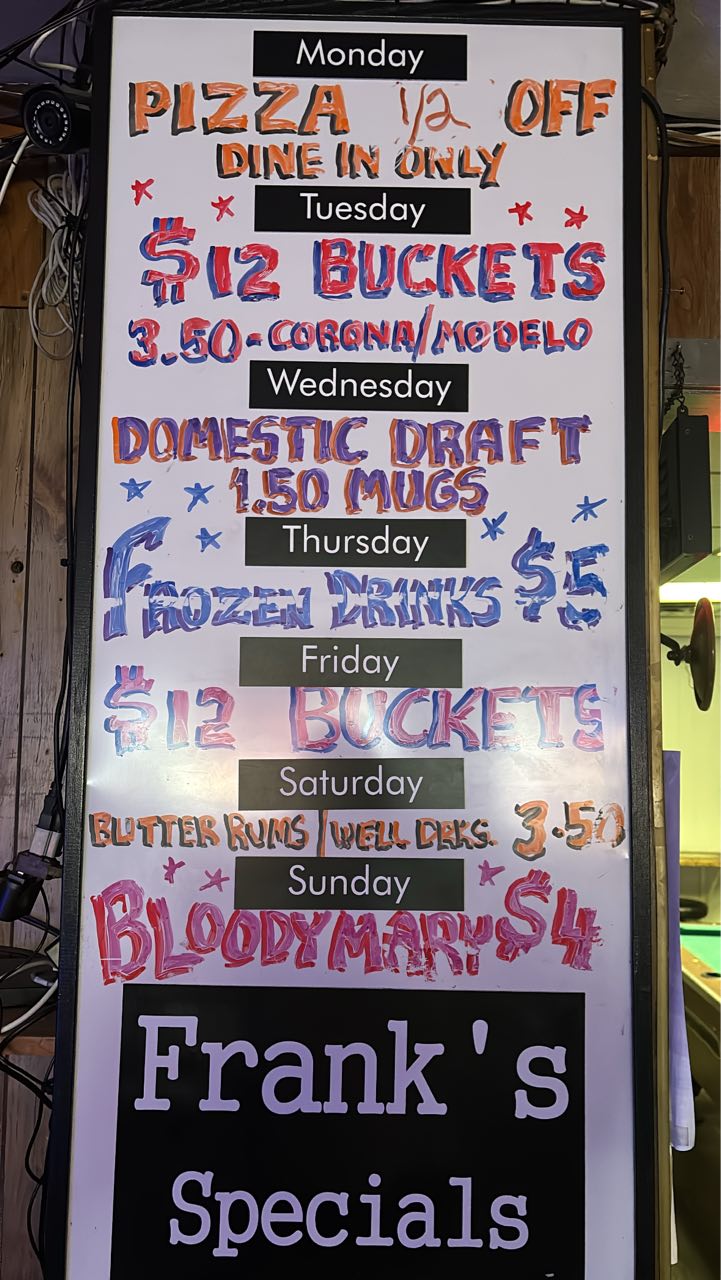 Monday
PIZZA 1/2 OFF
DINE IN ONLY
Tuesday
$12 BUCKETS
3.50-CORONA/MODELO
Wednesday
DOMESTIC DRAFT
1.50 MUGS
Thursday
FROZEN DRINKS $5
Friday
$12 BUCKETS
Saturday
BUTTER RUMS/WELL DRKS. 3.50
Sunday
BLOODYMARY $4
Frank's
Specials